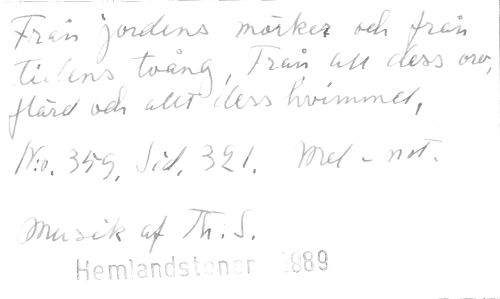 Från jordens mörker och från
tidens tvång, Från all dess oro,
flärd och allt dess hvimmel,
N:o. 359. Sid. 321. Mel - not.
Musik af Th. S.
Hemlandstoner 1889